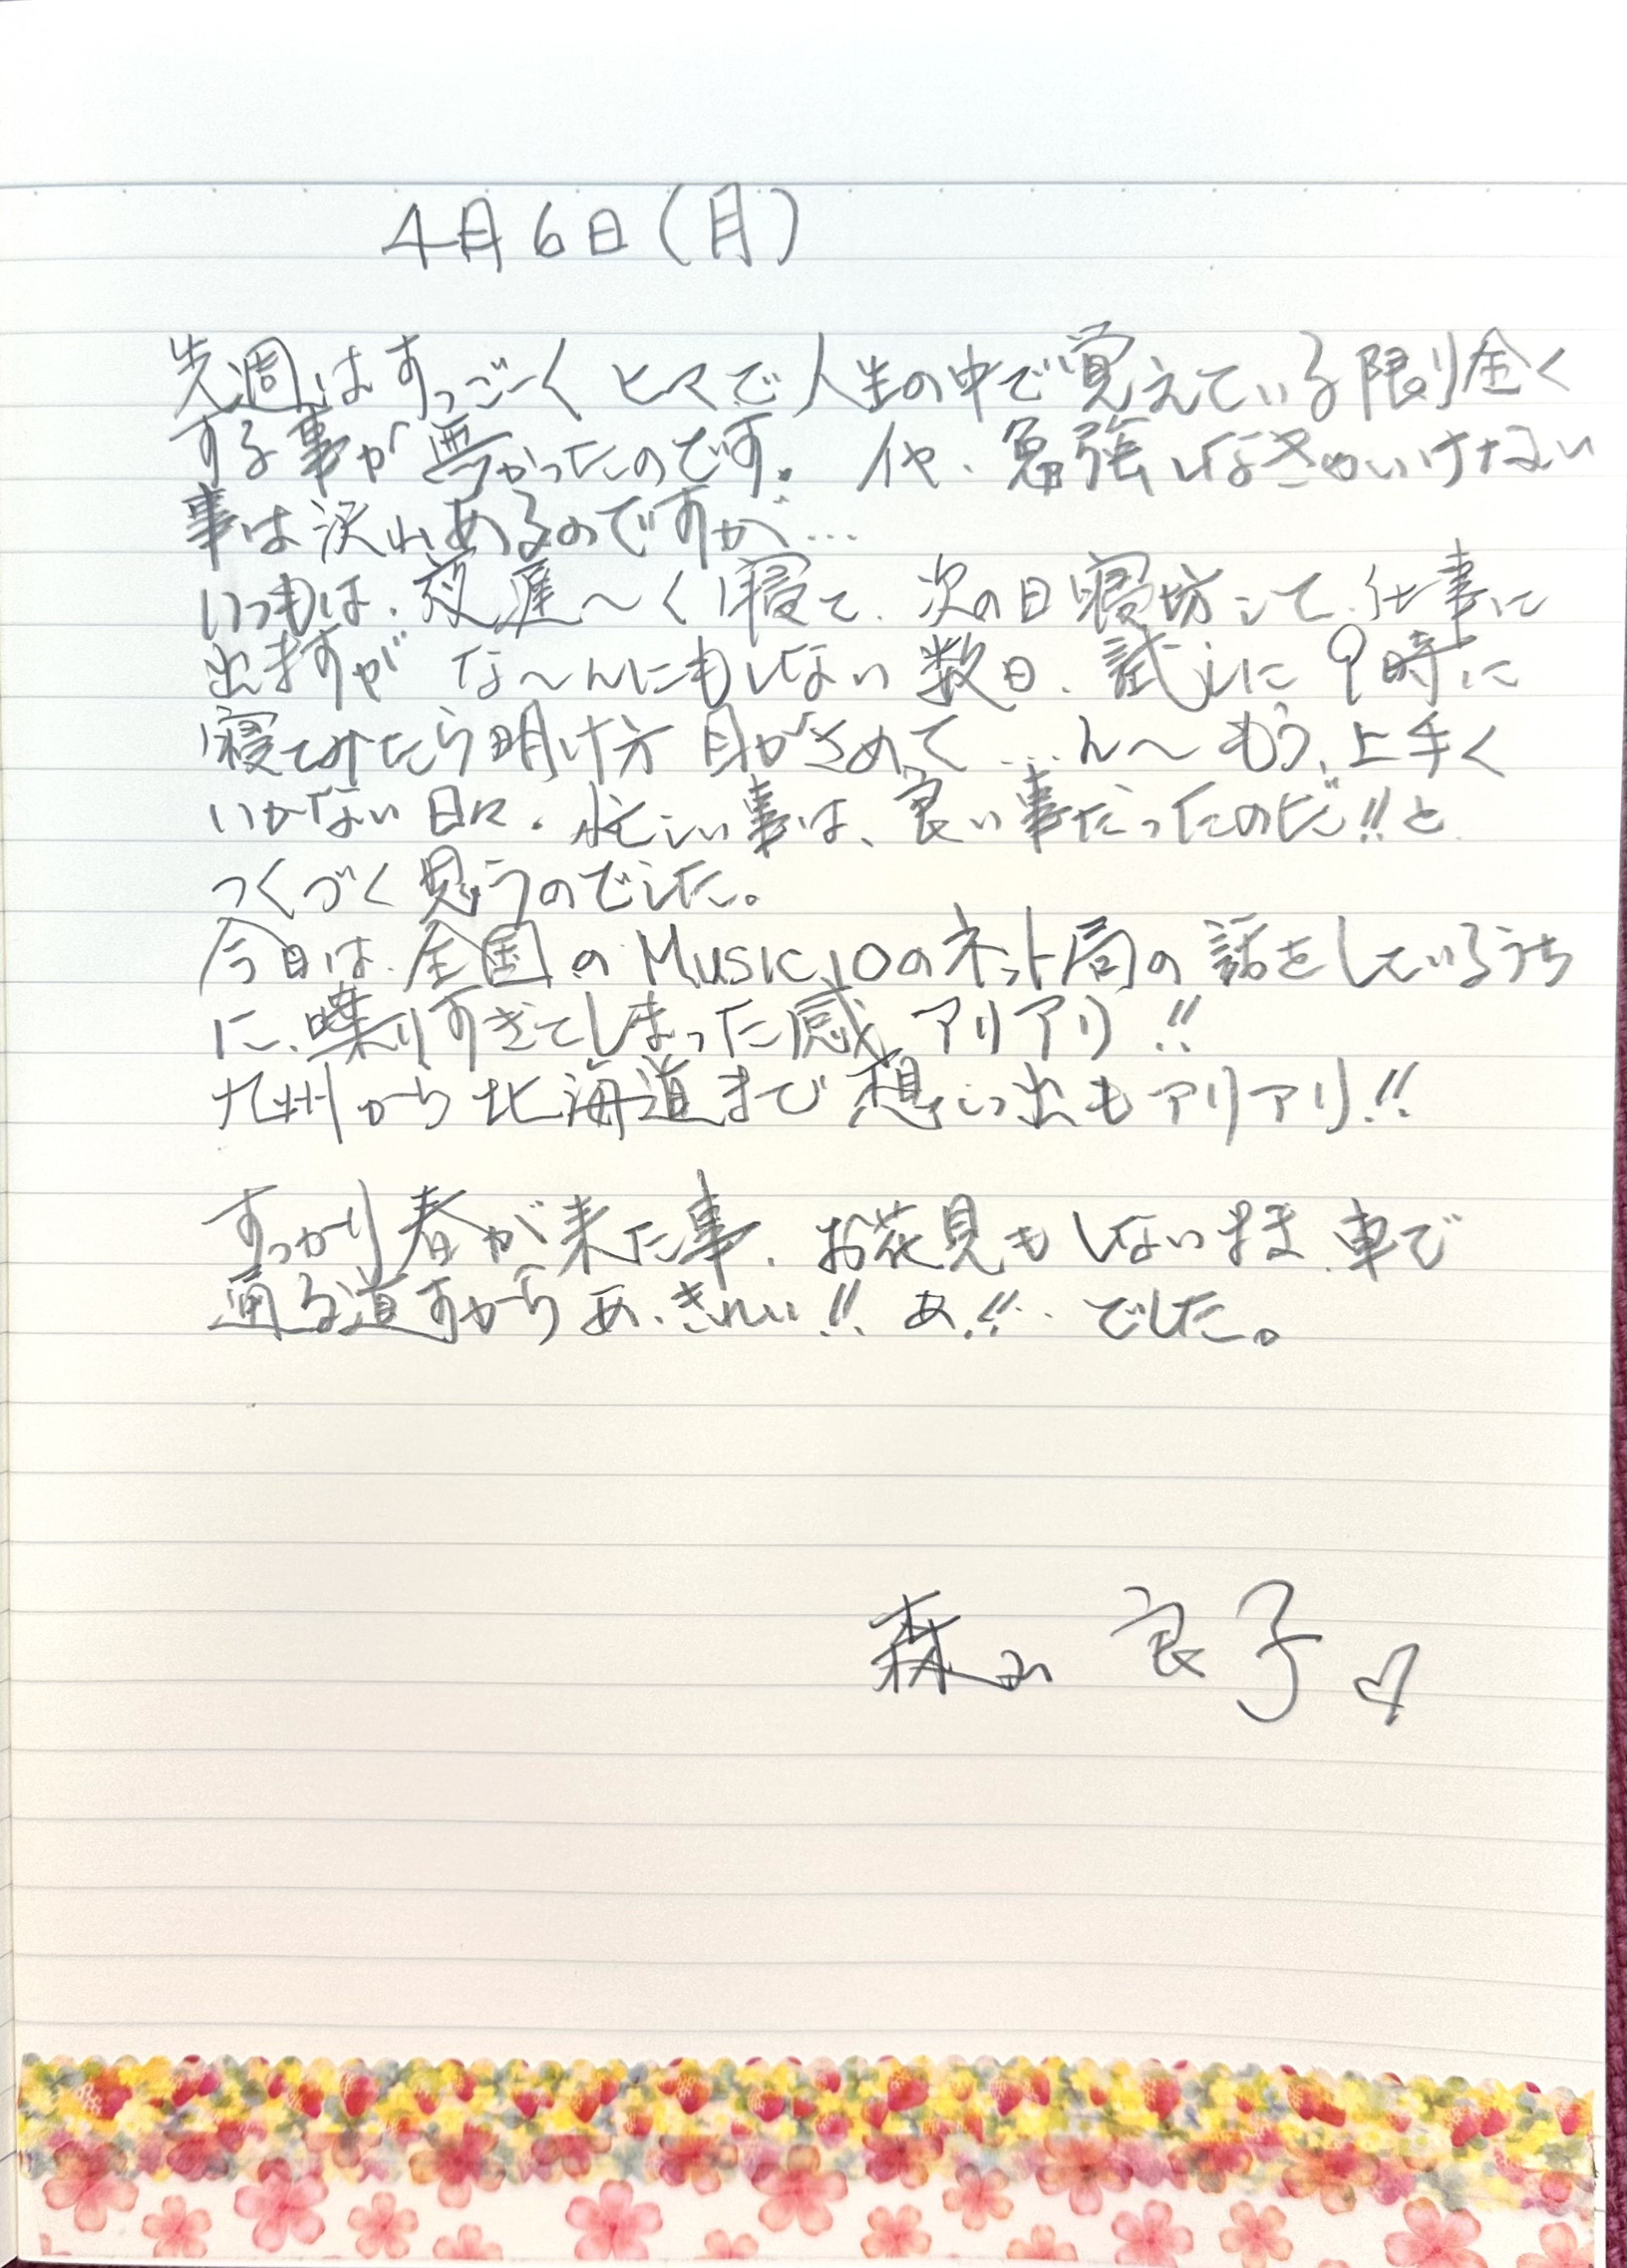 4月6日(月)
先週はすっごーくヒマで人生の中で覚えている限り全く
する事が無かったのです。イヤ、勉強しなきゃいけない
事は沢山あるのですが…
いつもは、夜遅〜く寝て、次の日寝坊して、仕事に
出ますが な〜んにもしない数日、試しに9時に
寝てみたら明け方目がさめて…ん〜もう、上手く
いかない日々。忙しい事は、良い事だったのだ!!と
つくづく思うのでした。
今日は、全国のMusic10のネット局の話をしているうち
に、喋りすぎてしまった感アリアリ!!
九州から北海道まで想い出もアリアリ!!
すっかり春が来た事、お花見もしないまま、車で
通る道すがら あ、きれい!! あ!!‥でした。
森山良子♡